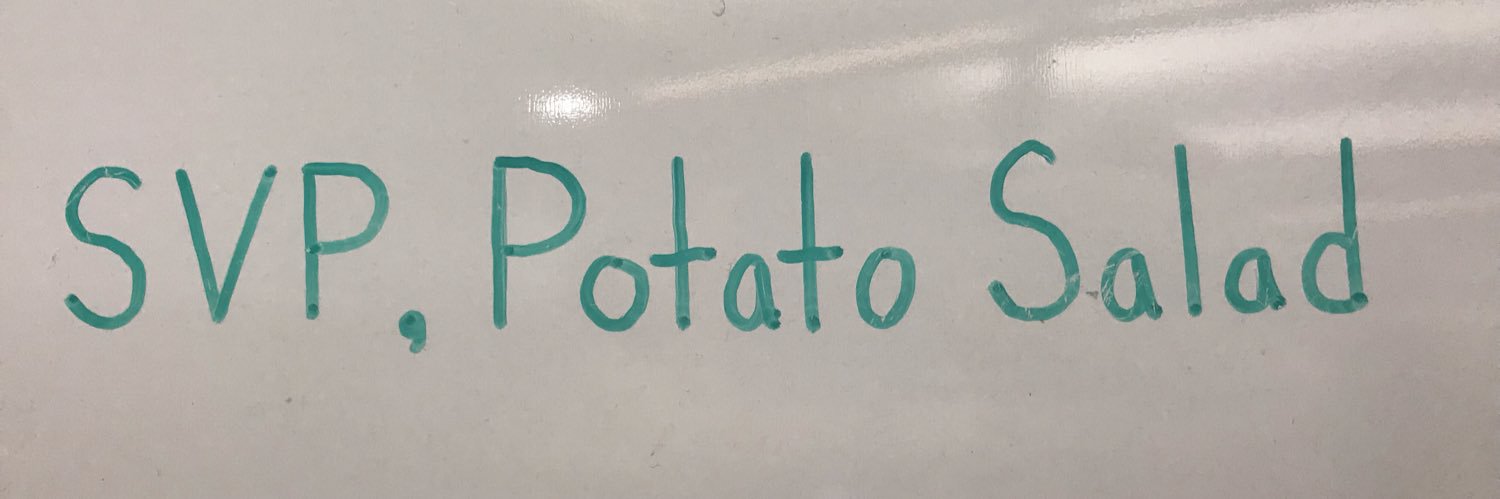 SVP, Potato Salad